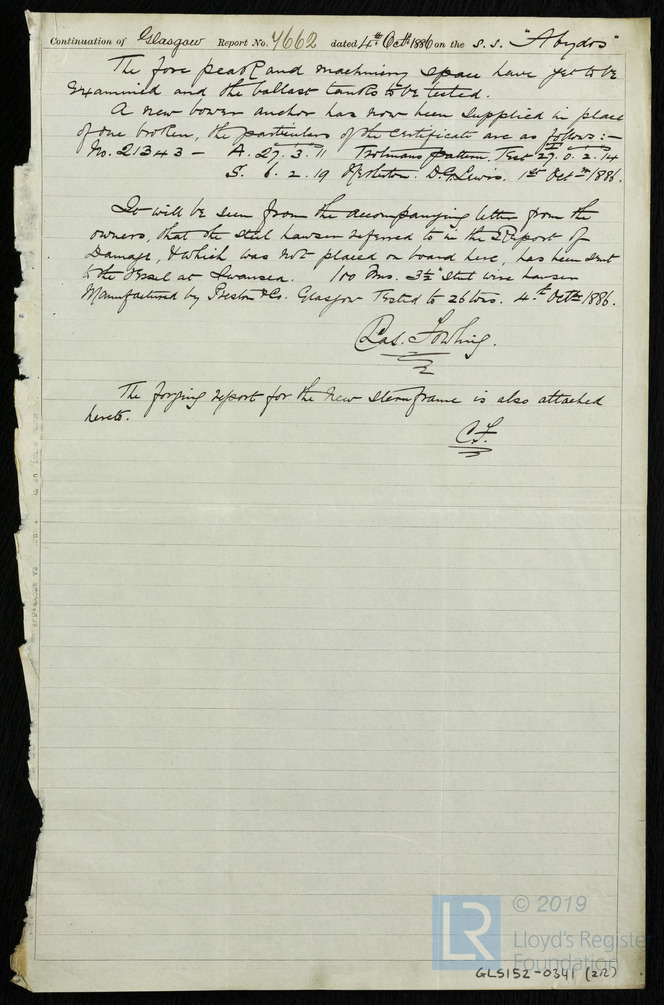 Continuation of Glasgow Report No. 7662 dated 4th Octr 1886 on the S.S. "Abydos"
The fore peak and machinery space have yet to be
examined and the ballast tanks to be tested.
A new bower anchor has now been supplied in place
of one broken, the particulars of the certificate are as follows:-
No. 21343 - A. 27. 3. 11 Trotmans pattern. Test 27. 0. 2. 14
S. 6. 2. 19 D.G. Lewis. 1st Octr 1886.
It will be seen from the accompanying letter from the
owners, that the steel hawser referred to in the Report of
Damage, & which was not placed on board here, has been sent
to the vessel at Swansea. 100 fms. 3½" steel wire hawser
Manufactured by & Co. Glasgow Tested to 26 tons. 4th Octr 1886.
Chas. Fowling.
The forging report for the new sternframe is also attached
hereto.
C.F.
LR
© 2019
Lloyd's Register
Foundation
GLS152-0341 (2/2)